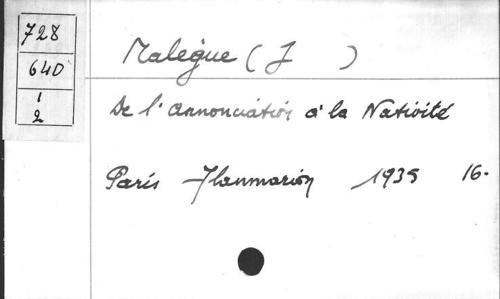 728
640
1
2
Malègue (J )
De l'Annonciation à la Nativité
Paris Flammarion 1935 16.